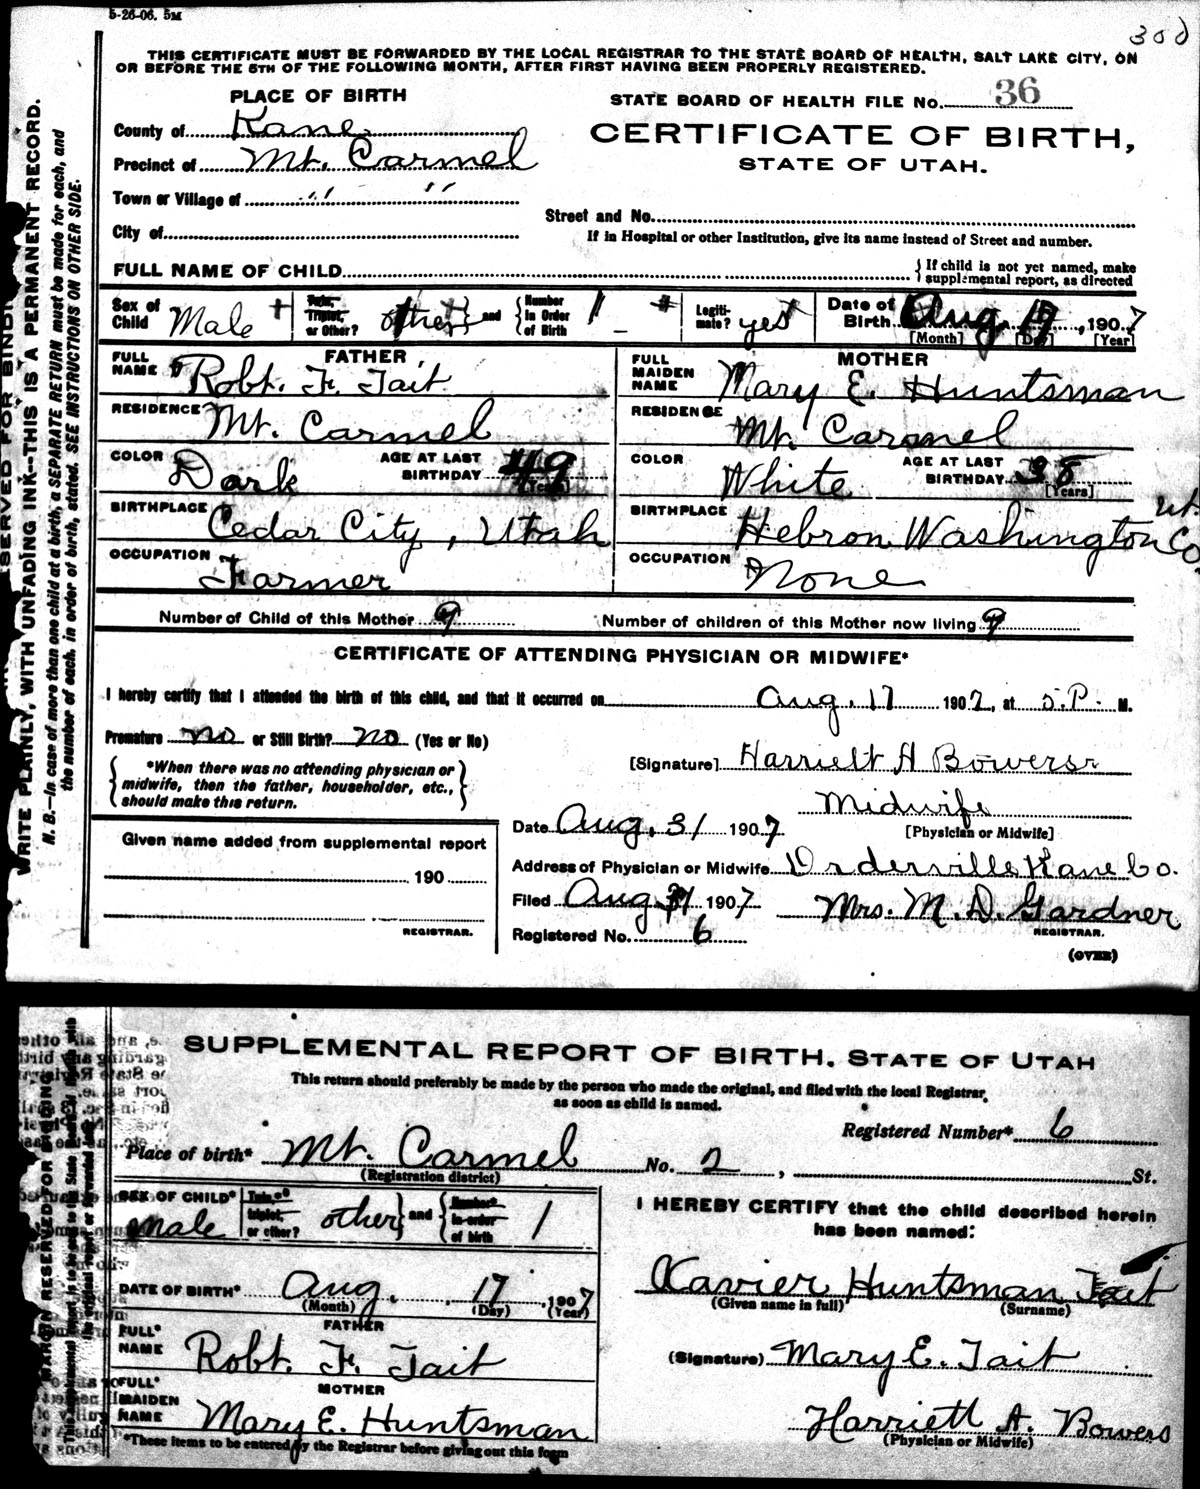 5-26-06. 5M
300
THIS CERTIFICATE MUST BE FORWARDED BY THE LOCAL REGISTRAR TO THE STATE BOARD OF HEALTH, SALT LAKE CITY, ON
OR BEFORE THE 5TH OF THE FOLLOWING MONTH, AFTER FIRST HAVING BEEN PROPERLY REGISTERED.
WRITE PLAINLY, WITH UNFADING INK--THIS IS A PERMANENT RECORD.
N. B.—In case of more than one child at a birth, a SEPARATE RETURN must be made for each, and
the number of each, in order of birth, stated. SEE INSTRUCTIONS ON OTHER SIDE.
PLACE OF BIRTH
STATE BOARD OF HEALTH FILE No. 36
County of Kane
CERTIFICATE OF BIRTH,
Precinct of Mt. Carmel
STATE OF UTAH.
Town or Village of " "
Street and No.
City of
If in Hospital or other Institution, give its name instead of Street and number.
FULL NAME OF CHILD
{ If child is not yet named, make
supplemental report, as directed
Sex of Child Male
Twin, Triplet, or Other? other } and { Number in Order of Birth 1
Legitimate? yes
Date of Birth Aug. 17, 1907
[Month] [Day] [Year]
FATHER
MOTHER
FULL NAME Robt. F. Tait
FULL MAIDEN NAME Mary E. Huntsman
RESIDENCE Mt. Carmel
RESIDENCE Mt. Carmel
COLOR Dark AGE AT LAST BIRTHDAY 49 [Years]
COLOR White AGE AT LAST BIRTHDAY 38 [Years]
BIRTHPLACE Cedar City, Utah
BIRTHPLACE Hebron Washington Co. Ut.
OCCUPATION Farmer
OCCUPATION None
Number of Child of this Mother 9
Number of children of this Mother now living 9
CERTIFICATE OF ATTENDING PHYSICIAN OR MIDWIFE*
I hereby certify that I attended the birth of this child, and that it occurred on Aug. 17 1907, at 5.P. M.
Premature no or Still Birth? no (Yes or No)
{ *When there was no attending physician or
midwife, then the father, householder, etc.,
should make this return. }
[Signature] Harriett A Bowers
Midwife
[Physician or Midwife]
Date Aug. 31 1907
Given name added from supplemental report
190
REGISTRAR.
Address of Physician or Midwife Orderville Kane Co.
Filed Aug 31 1907 Mrs. M. D. Gardner
REGISTRAR.
Registered No. 6
(OVER)
SUPPLEMENTAL REPORT OF BIRTH, STATE OF UTAH
This return should preferably be made by the person who made the original, and filed with the local Registrar,
as soon as child is named.
Registered Number* 6
Place of birth* Mt. Carmel No. 2, St.
(Registration district)
MARGIN RESERVED FOR BINDING
SEX OF CHILD* Male
Twin,* triplet, or other? other } and { Number* in order of birth 1
I HEREBY CERTIFY that the child described herein
has been named:
DATE OF BIRTH* Aug. 17, 1907
(Month) (Day) (Year)
Xavier Huntsman Tait
(Given name in full) (Surname)
FATHER
FULL* NAME Robt. F. Tait
(Signature) Mary E. Tait
MOTHER
FULL* MAIDEN NAME Mary E. Huntsman
Harriett A. Bowers
(Physician or Midwife)
*These items to be entered by the Registrar before giving out this form